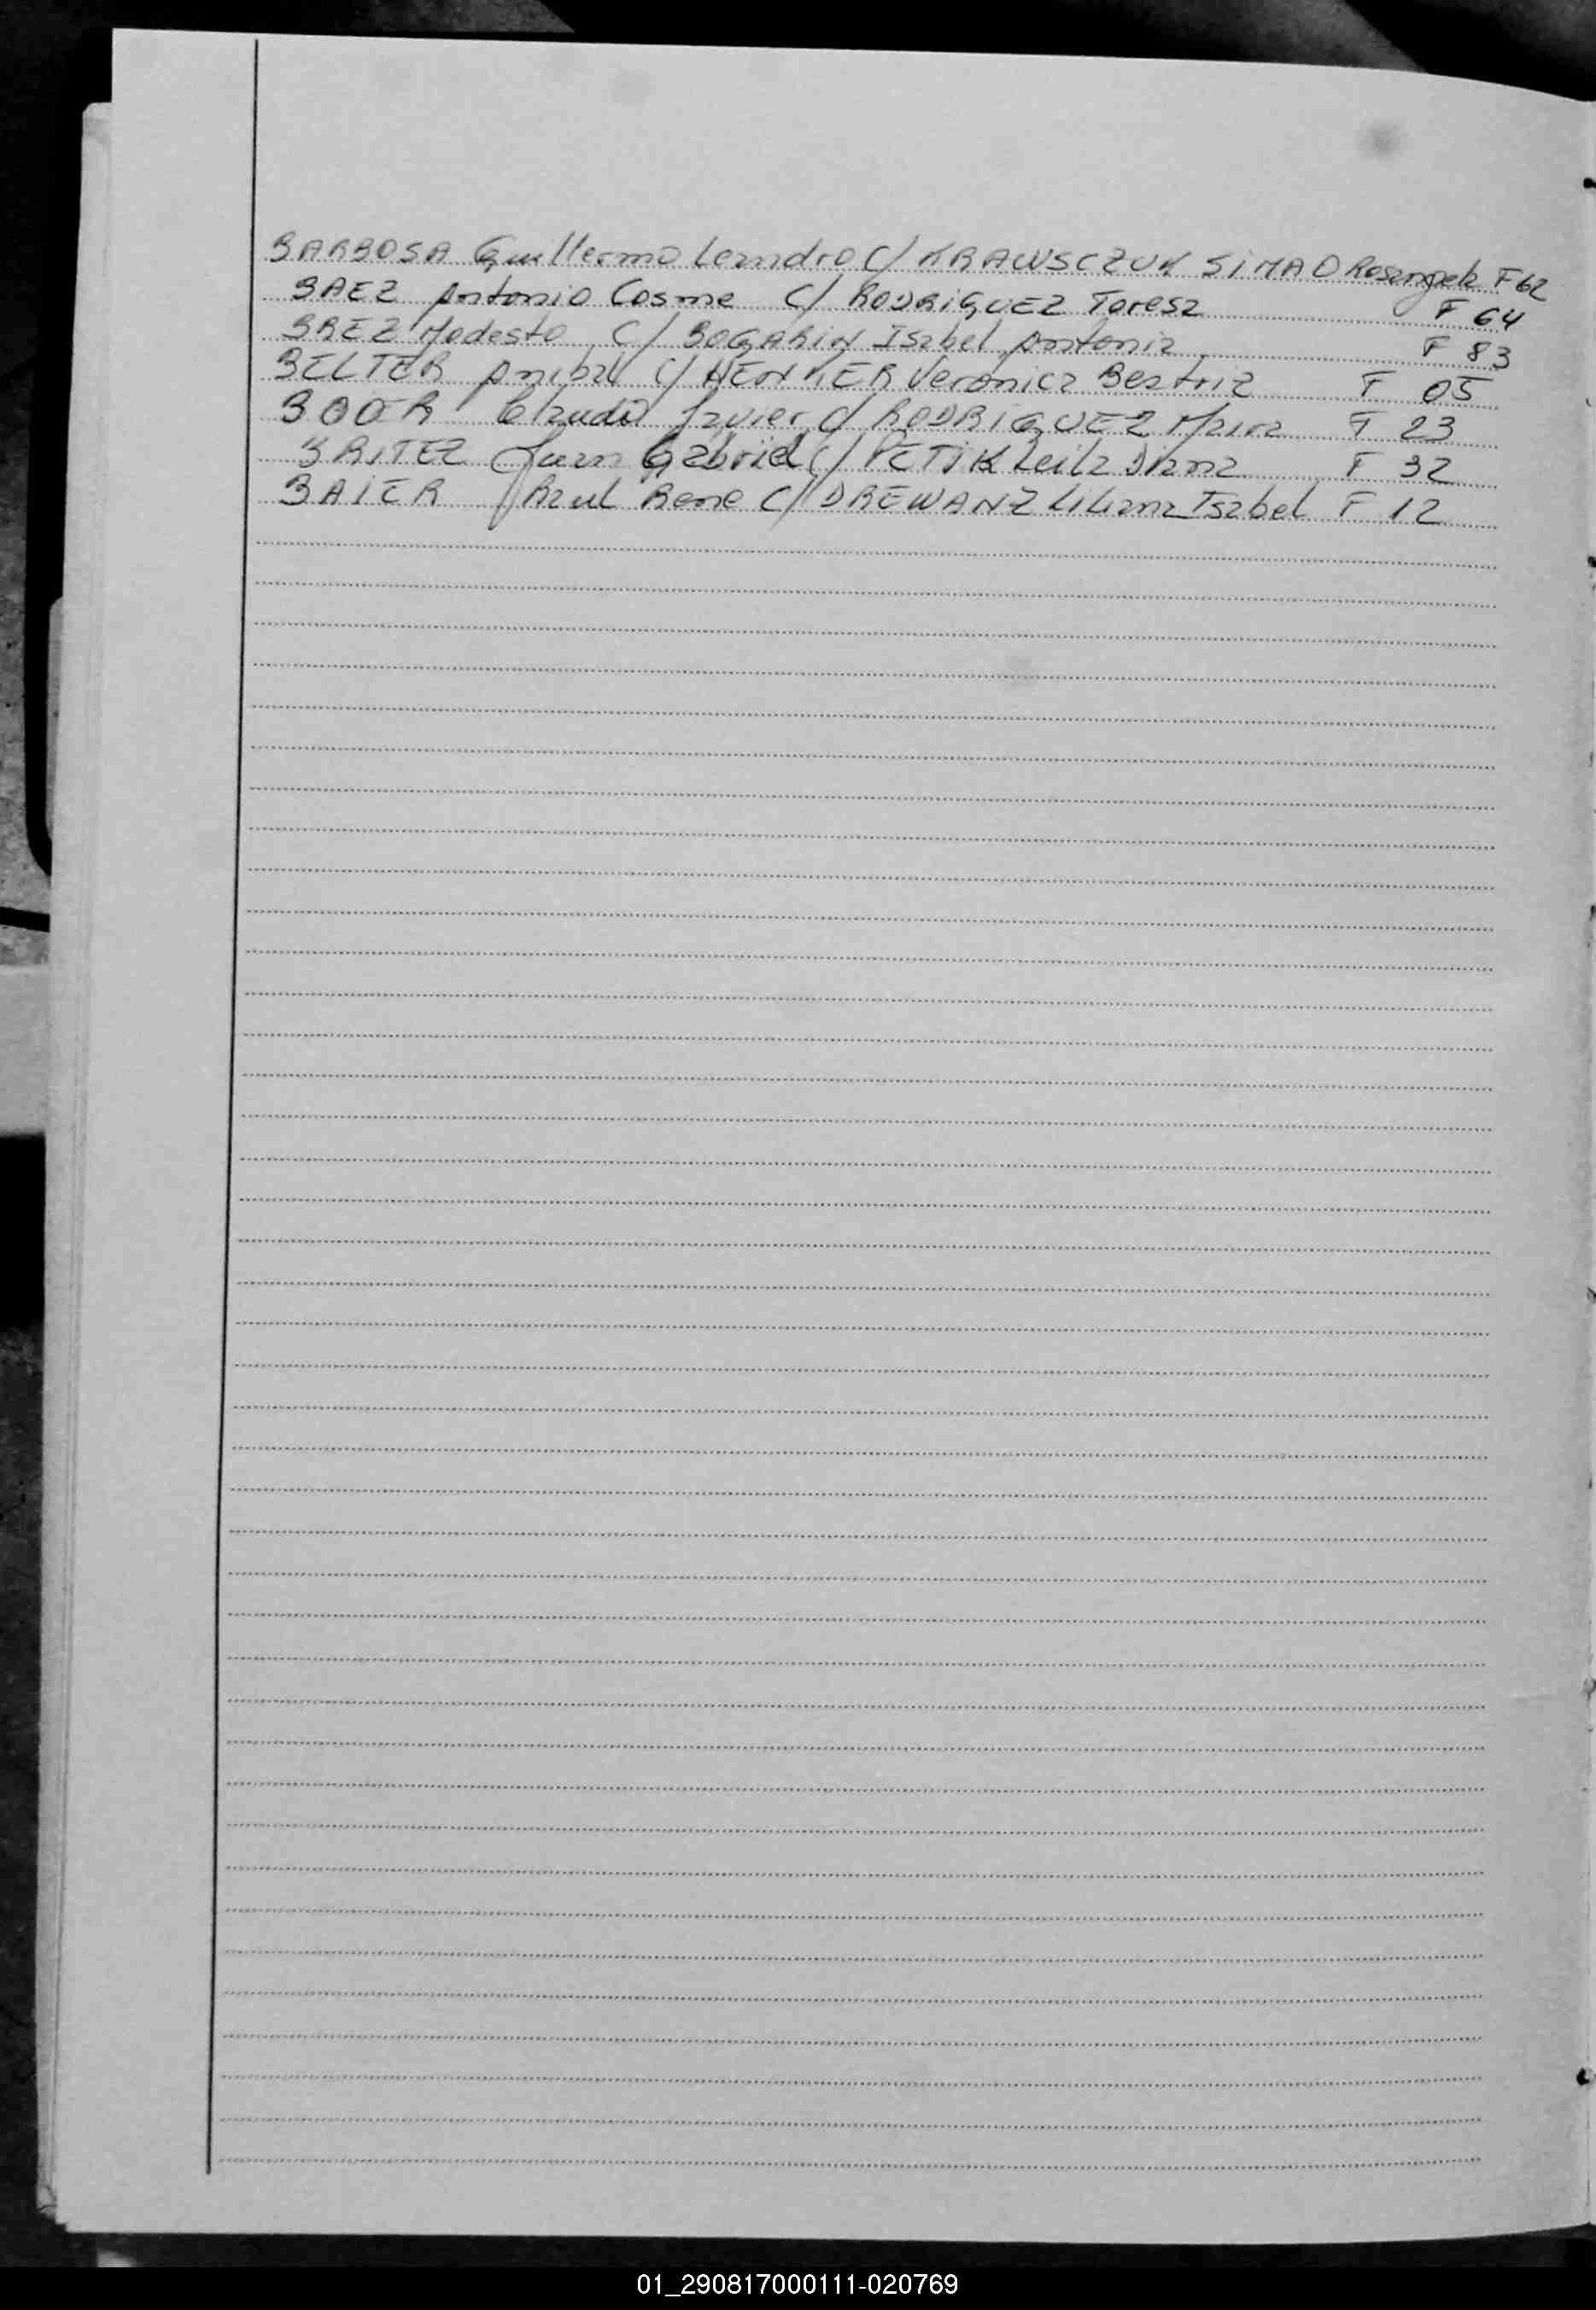 BARBOSA Guillermo Leandro C/ KRAWSCZUK SIMAO Rosangela F 62
BAEZ Antonio Cosme C/ RODRIGUEZ Teresa F 64
BAEZ Modesto C/ BOGARIN Isabel Antonia F 83
BELTER Anibal C/ HENKER Veronica Beatriz F 05
BOOR Claudio Javier C/ RODRIGUEZ F 23
BRITEZ Juan Gabriel C/ PETIK Leila Diana F 32
BAIER Raul Rene C/ DREWANZ Liliana Isabel F 12
01_290817000111-020769